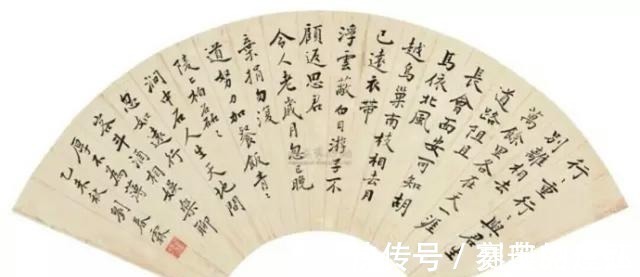 行〻重行〻與君生
別離相去
萬餘里各在天一涯
道路阻且
長會面安可知胡
馬依北風
越鳥巢南枝相去日
已遠衣帶
浮雲蔽白日游子不
顧返思君
令人老歲月忽已晚
棄捐勿復
道努力加餐飯青〻
陵上柏磊〻
澗中石人生天地間
忽如遠行
客斗酒相娛樂聊
厚不為薄
乙未秋 劉春霖